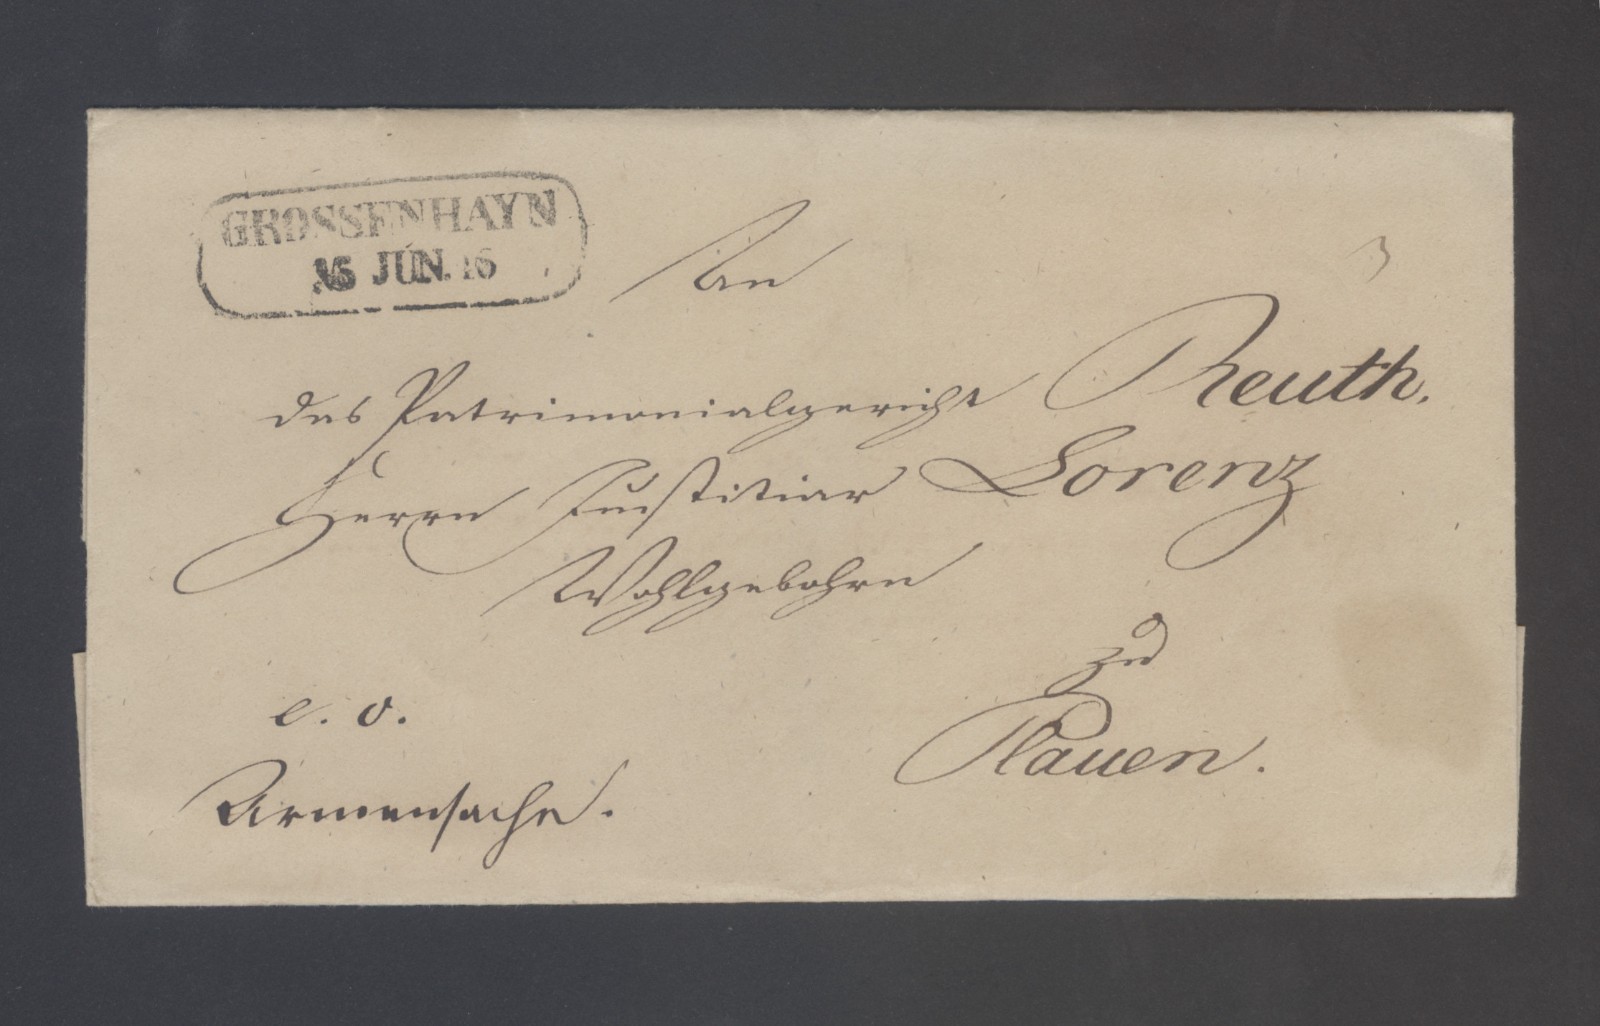 GROSSENHAYN
16 JUN. 16
3
An
das Patrimonialgericht Reuth.
Herrn Justitiar Lorenz
Wohlgebohrn
zu
Plauen.
e. o.
Armensache.